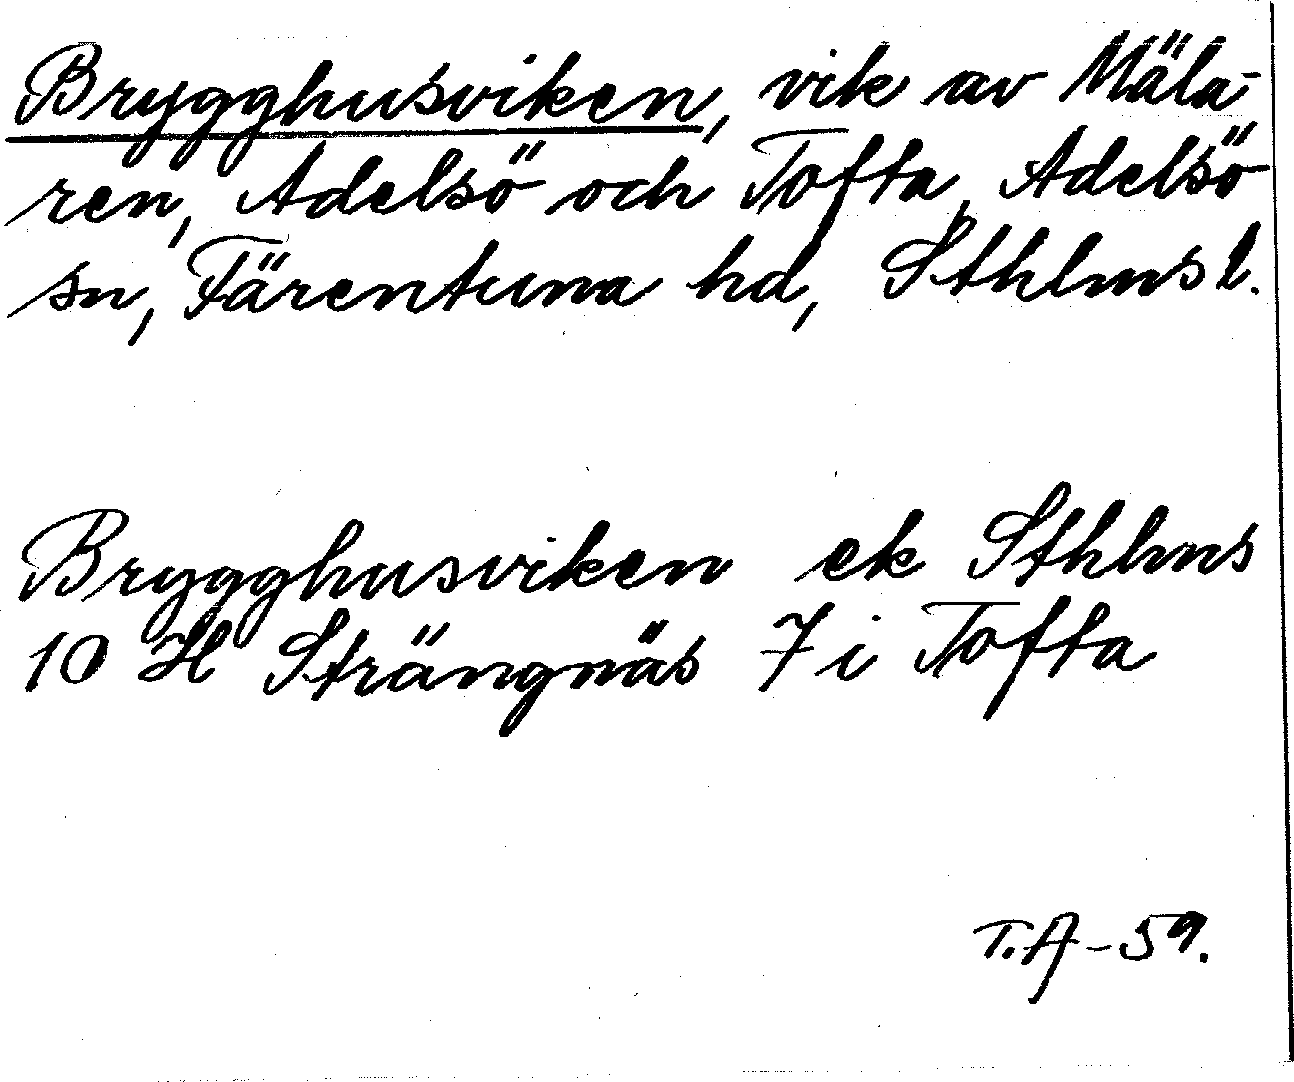 Brygghusviken, vik av Mäla-
ren, Adelsö och Tofta, Adelsö
sn, Färentuna hd, Sthlms l.
Brygghusviken ek Sthlms
10 H Strängnäs 7 i Tofta
T.A-59.